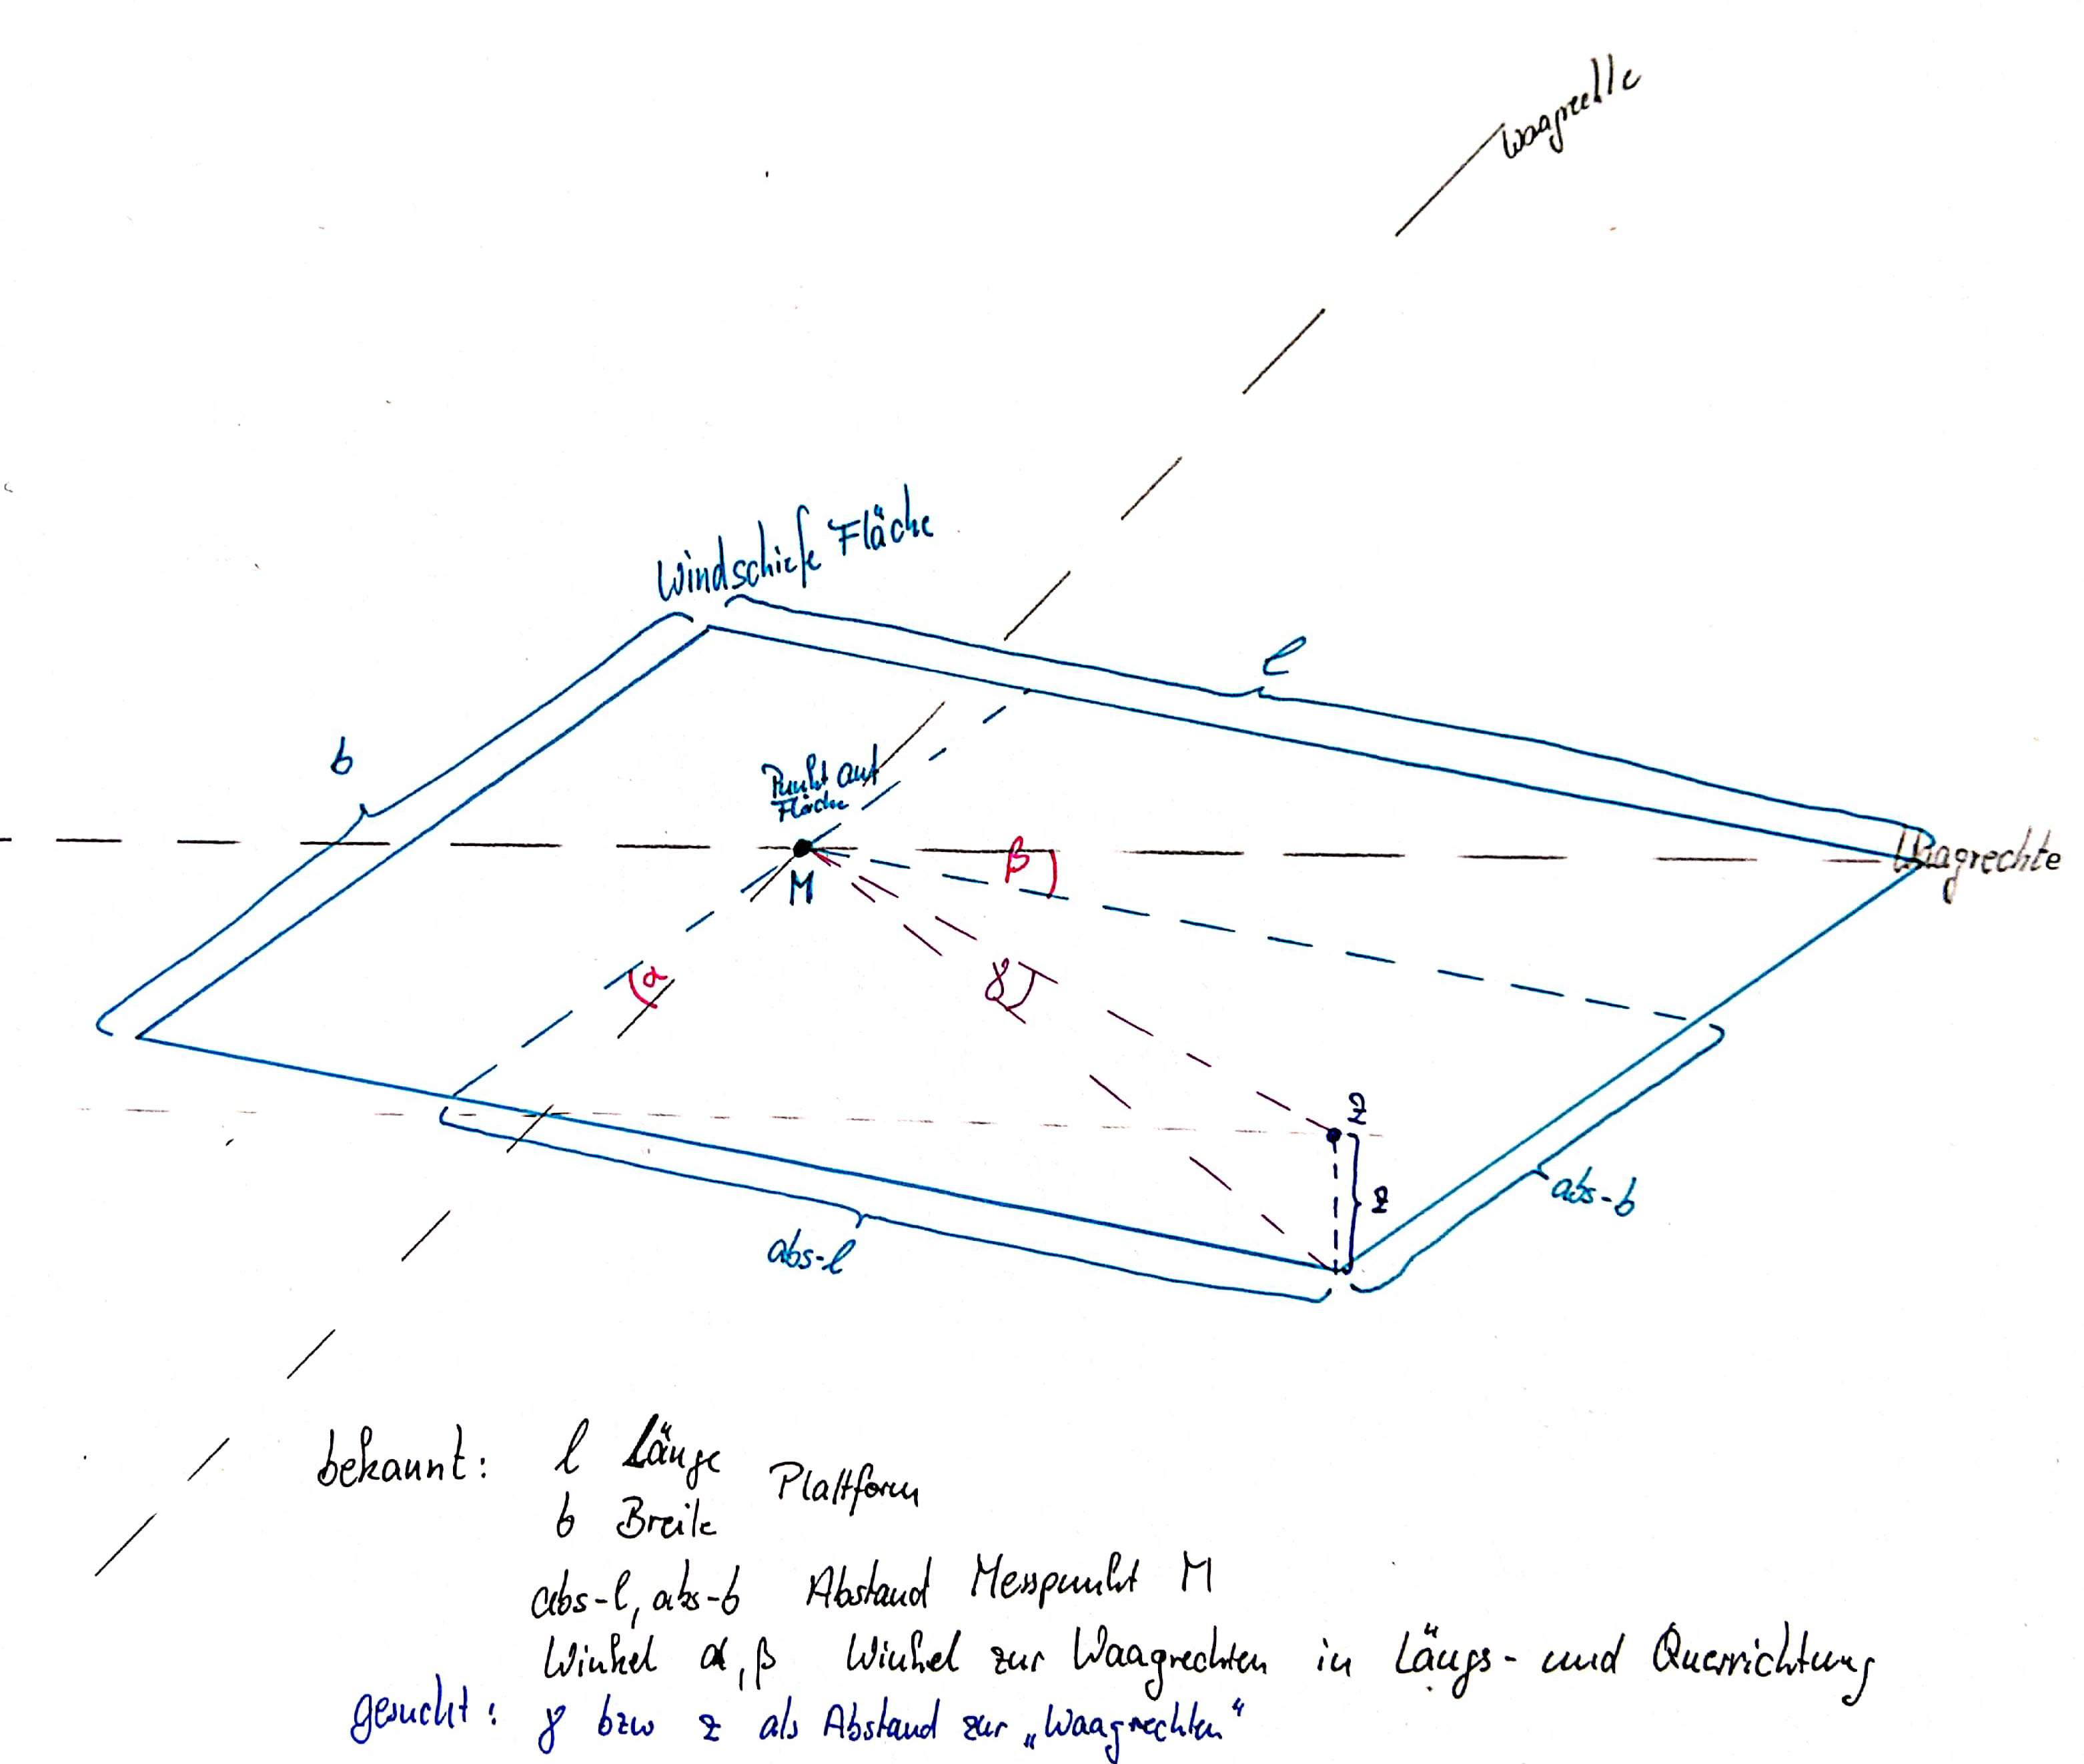 Waagrechte
Windschiefe Fläche
l
b
Punkt auf
Fläche
β
Waagrechte
M
α
γ
z
z
abs-b
abs-l
bekannt: l Länge Plattform
b Breite
abs-l, abs-b Abstand Messpunkt M
Winkel α, β Winkel zur Waagrechten in Längs- und Querrichtung
gesucht: γ bzw z als Abstand zur „Waagrechten“